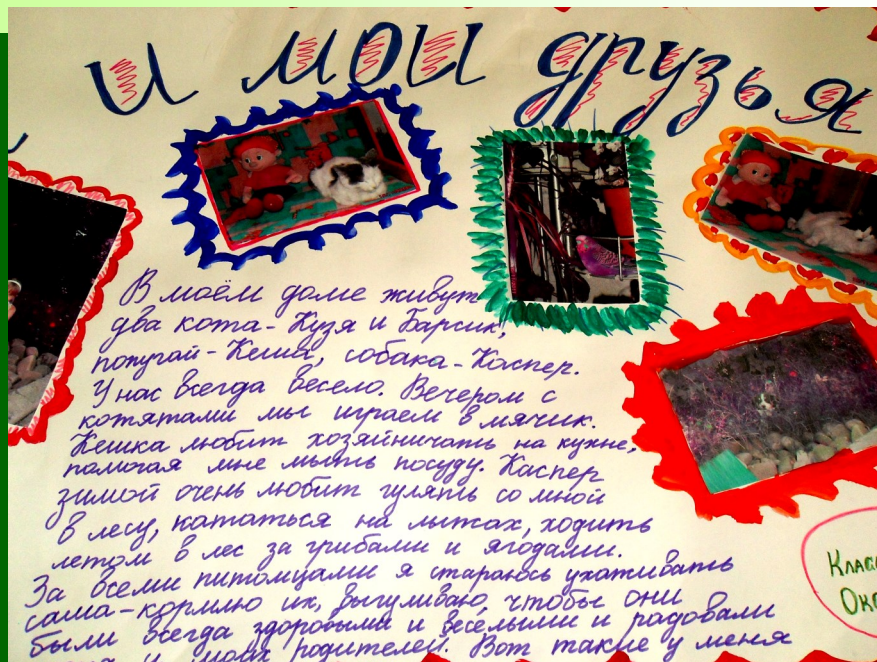 и мои друзья
В моём доме живут
два кота - Кузя и Барсик,
попугай - Кеша, собака - Каспер.
У нас всегда весело. Вечером с
котятами мы играем в мячик.
Кешка любит хозяйничать на кухне,
помогая мне мыть посуду. Каспер
зимой очень любит гулять со мной
в лесу, кататься на лыжах, ходить
летом в лес за грибами и ягодами.
За всеми питомцами я стараюсь ухаживать
сама - кормлю их, выгуливаю, чтобы они
были всегда здоровыми и весёлыми и радовали
и моих родителей. Вот такие у меня